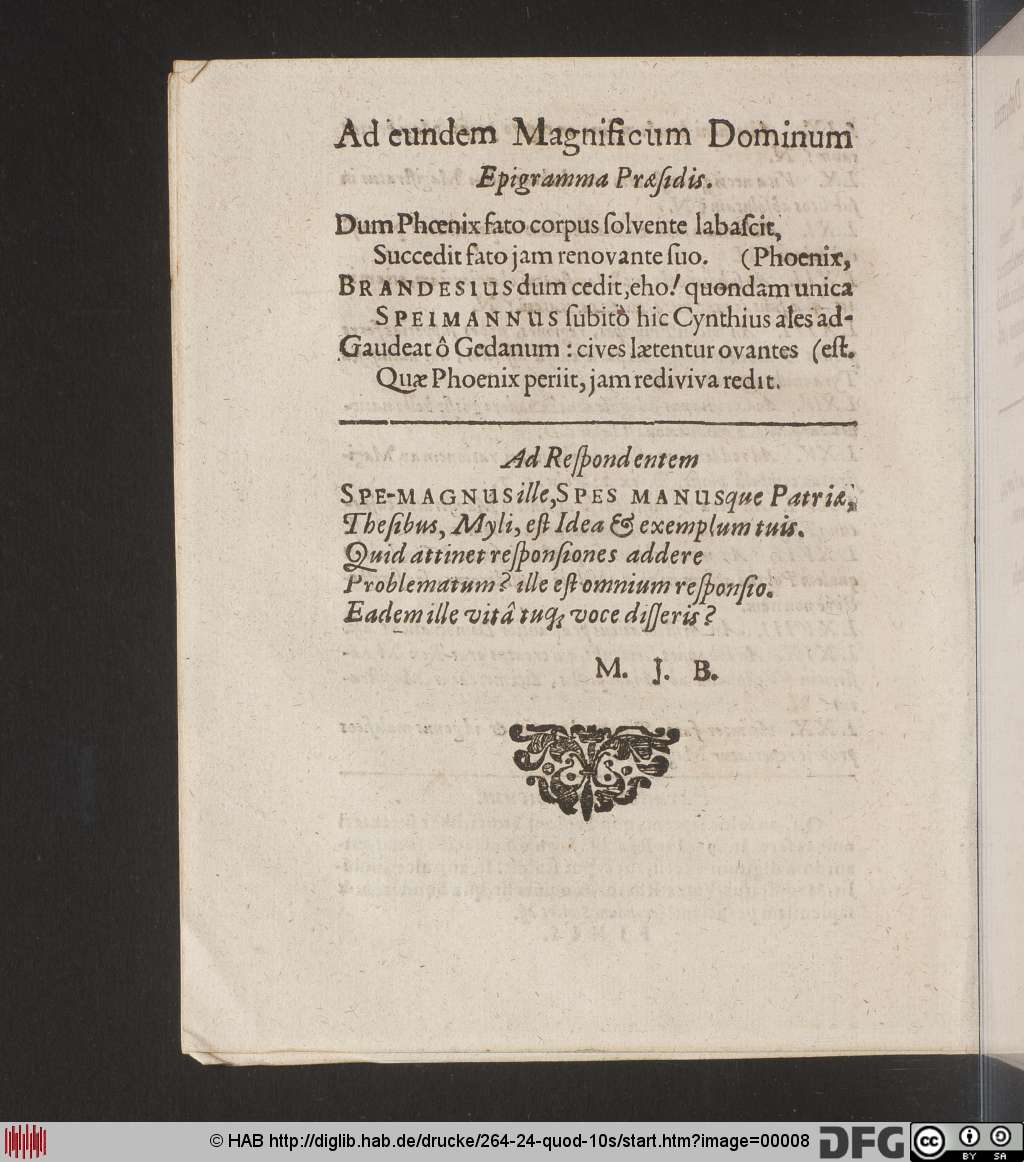 Ad eundem Magnificum Dominum
Epigramma Præſidis.
Dum Phœnix fato corpus ſolvente labaſcit,
Succedit fato jam renovante ſuo. (Phoenix,
BRANDESIUS dum cedit, eho! quondam unica
SPEIMANNUS ſubitò hic Cynthius ales ad-
Gaudeat ô Gedanum : cives lætentur ovantes (eſt.
Quæ Phoenix periit, jam rediviva redit.
Ad Reſpondentem
SPE-MAGNUS ille, SPES MANUSque Patriæ,
Theſibus, Myli, eſt Idea & exemplum tuis.
Quid attinet reſponſiones addere
Problematum? ille eſt omnium reſponſio.
Eadem ille vitâ tuq́; voce diſſeris?
M. J. B.
© HAB http://diglib.hab.de/drucke/264-24-quod-10s/start.htm?image=00008
DFG
cc
BY SA